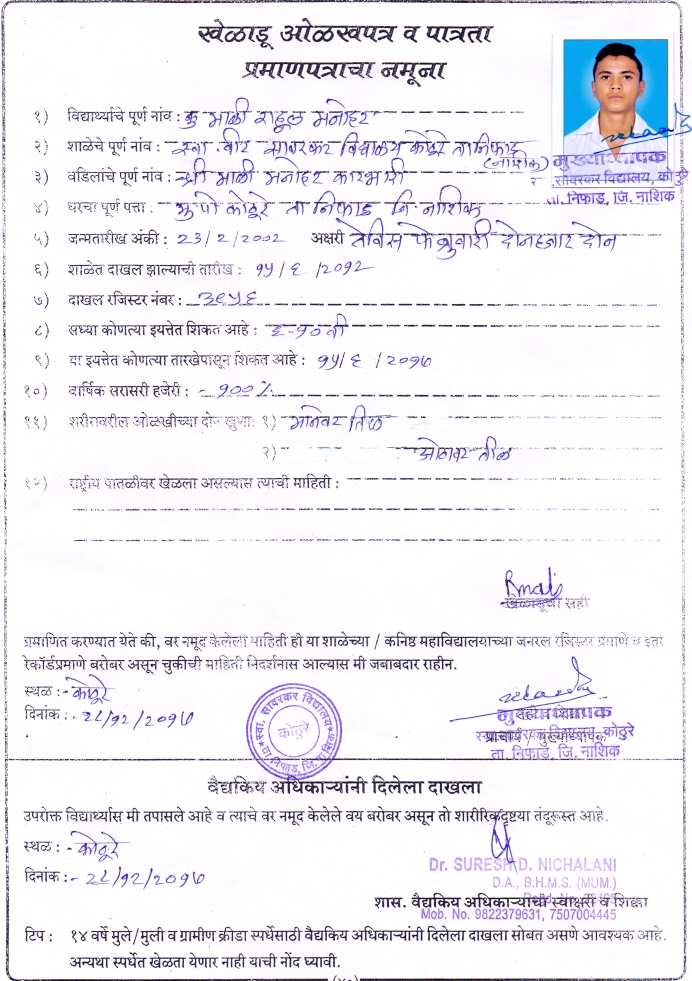 खेळाडू ओळखपत्र व पात्रता
प्रमाणपत्राचा नमूना
१) विद्यार्थ्याचे पूर्ण नांव : कु माळी राहूल मनोहर
२) शाळेचे पूर्ण नांव : स्वा. वीर सावरकर विद्यालय कोठुरे ता निफाड (नाशिक)
मुख्याध्यापक
सावरकर विद्यालय, कोठुरे
ता. निफाड, जि. नाशिक
३) वडिलांचे पूर्ण नांव : श्री माळी मनोहर कारभारी
४) घरचा पूर्ण पत्ता : मु पो कोठुरे ता निफाड जि. नाशिक
५) जन्मतारीख अंकी : 23/2/2002 अक्षरी तेविस फेब्रुवारी दोनहजार दोन
६) शाळेत दाखल झाल्याची तारीख : १५/६/२०१२
७) दाखल रजिस्टर नंबर : ३९५६
८) सध्या कोणत्या इयत्तेत शिकत आहे : इ-१० वी
९) या इयत्तेत कोणत्या तारखेपासून शिकत आहे : १५/६/२०१७
१०) वार्षिक सरासरी हजेरी : - १००%
११) शरीरावरील ओळखीच्या दोन खुणा १) मानेवर तिळ
२) ओठावर तीळ
१२) राष्ट्रीय पातळीवर खेळला असल्यास त्याची माहिती :
खेळाडूची सही
प्रमाणित करण्यात येते की, वर नमूद केलेली माहिती ही या शाळेच्या / कनिष्ठ महाविद्यालयाच्या जनरल रजिस्टर प्रमाणे व इतर
रेकॉर्डप्रमाणे बरोबर असून चुकीची माहिती निदर्शनास आल्यास मी जबाबदार राहीन.
स्थळ : - कोठुरे
दिनांक : - २८/१२/२०१७
स्वा. सावरकर विद्यालय
कोठुरे
ता. निफाड, जि. नाशिक
मुख्याध्यापक
विद्यालय, कोठुरे
ता. निफाड, जि. नाशिक
वैद्यकिय अधिकाऱ्यांनी दिलेला दाखला
उपरोक्त विद्यार्थ्यास मी तपासले आहे व त्याचे वर नमूद केलेले वय बरोबर असून तो शारीरिकदृष्टया तंदूरूस्त आहे.
स्थळ : - कोठुरे
दिनांक : - २८/१२/२०१७
Dr. SURESH D. NICHALANI
D.A., B.H.M.S. (MUM.)
शास. वैद्यकिय अधिकाऱ्याची स्वाक्षरी व शिक्का
Mob. No. 9822379631, 7507004445
टिप : १४ वर्षे मुले/मुली व ग्रामीण क्रीडा स्पर्धेसाठी वैद्यकिय अधिकाऱ्यांनी दिलेला दाखला सोबत असणे आवश्यक आहे.
अन्यथा स्पर्धेत खेळता येणार नाही याची नोंद घ्यावी.